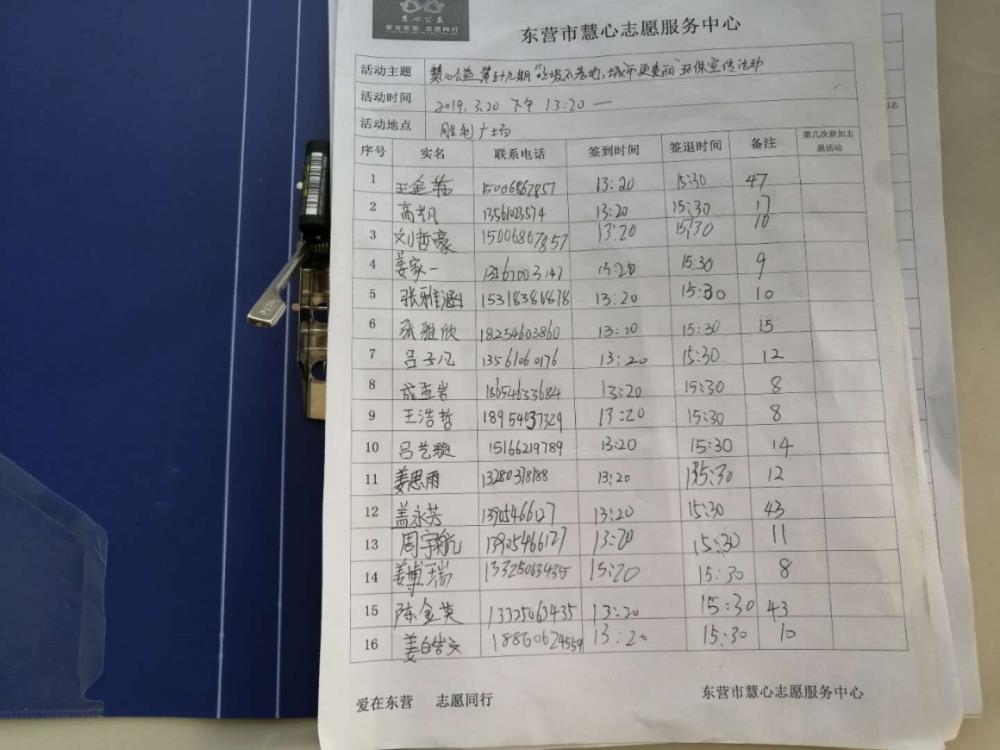 慧心公益
爱在东营 志愿同行
东营市慧心志愿服务中心
活动主题 慧心公益第五十九期"垃圾不落地,城市更美丽"环保宣传活动
活动时间 2019.3.20 下午 13:20 —
活动地点 胜利广场
序号 实名 联系电话 签到时间 签退时间 备注 第几次参加志愿活动
1 15006867857 13:20 15:30 47
2 高凯 1356103574 13:20 15:30 17
3 刘哲豪 15006867857 13:20 15:30 10
4 姜家一 13:20 15:30 9
5 张雅涵 15318386878 13:20 15:30 10
6 张雅欣 18254603860 13:20 15:30 15
7 吕子凡 13561060176 13:20 15:30 12
8 成孟岩 18654633684 13:20 15:30 8
9 王浩哲 18954037329 13:20 15:30 8
10 吕艺璇 15166219789 13:20 15:30 14
11 姜思雨 13280378188 13:20 15:30 12
12 盖永芳 1395466127 13:20 15:30 43
13 周宇航 13905466127 13:20 15:30 11
14 姜博瑞 13325063435 15:20 15:30 8
15 陈金英 13325063435 13:20 15:30 43
16 18860624559 13:20 15:30 10
爱在东营 志愿同行 东营市慧心志愿服务中心